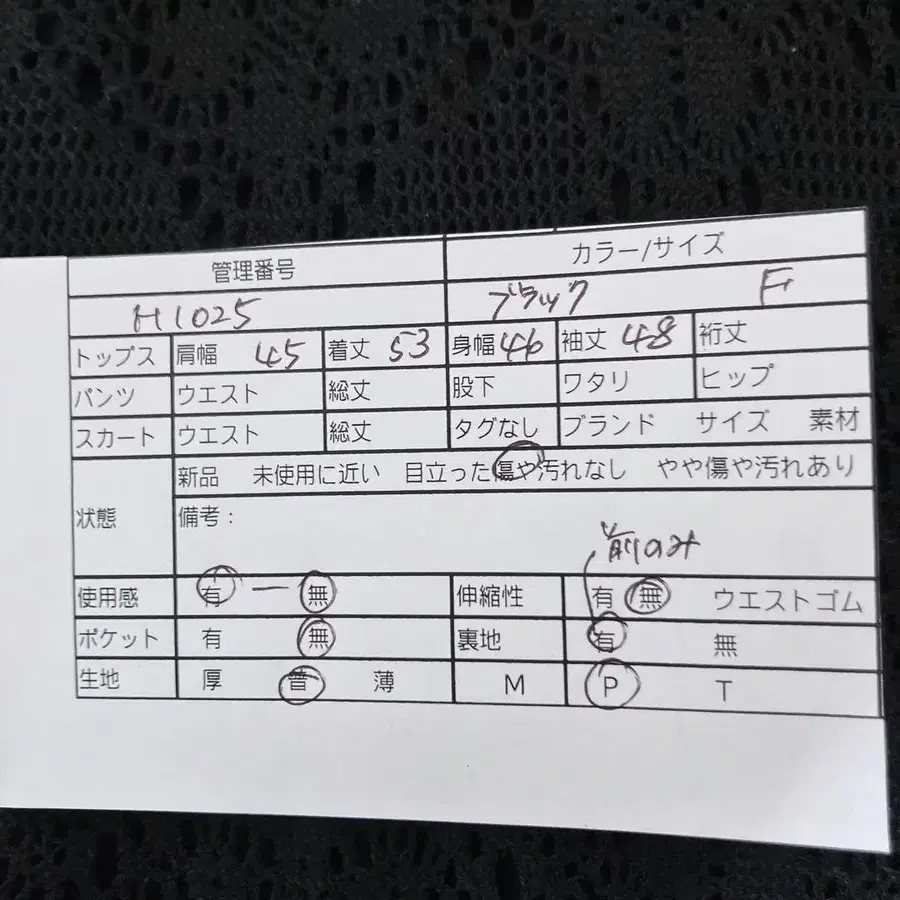 管理番号 カラー/サイズ
H1025 ブラック F
トップス 肩幅 45 着丈 53 身幅 46 袖丈 48 裄丈
パンツ ウエスト 総丈 股下 ワタリ ヒップ
スカート ウエスト 総丈 タグなし ブランド サイズ 素材
新品 未使用に近い 目立った傷や汚れなし やや傷や汚れあり
状態 備考：
前のみ
使用感 有 ー 無 伸縮性 有 無 ウエストゴム
ポケット 有 無 裏地 有 無
生地 厚 普 薄 M P T